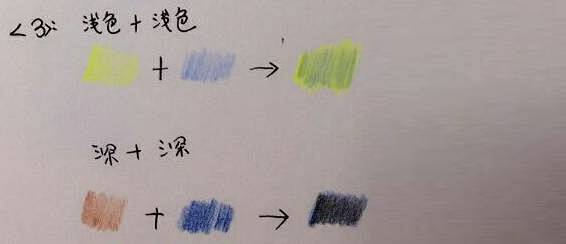 <3>: 浅色 + 浅色
+ →
深 + 深
+ →